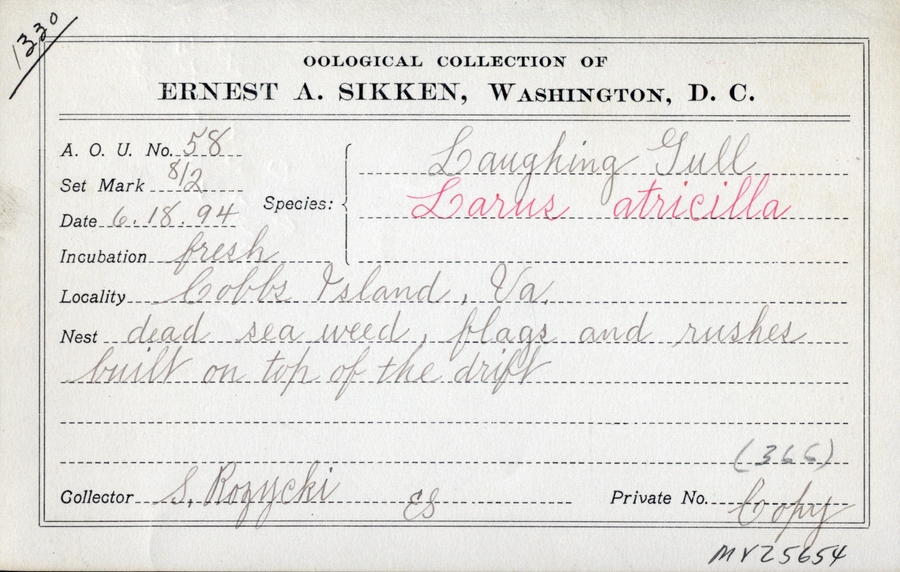 1330
OOLOGICAL COLLECTION OF
ERNEST A. SIKKEN, WASHINGTON, D. C.
A. O. U. No. 58
Set Mark 8/2
Date 6.18.94
Incubation fresh
Species: Laughing Gull
Larus atricilla
Locality Cobbs Island, Va.
Nest dead sea weed, flags and rushes
built on top of the drift
(366)
Collector S. Rozycki ES Private No. Copy
MVZ5654